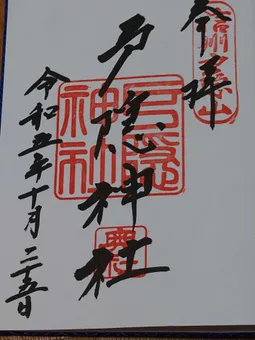 信州戸隠山
奉拝
戸隠神社
戸隠神社
奥社
令和五年十月二十五日